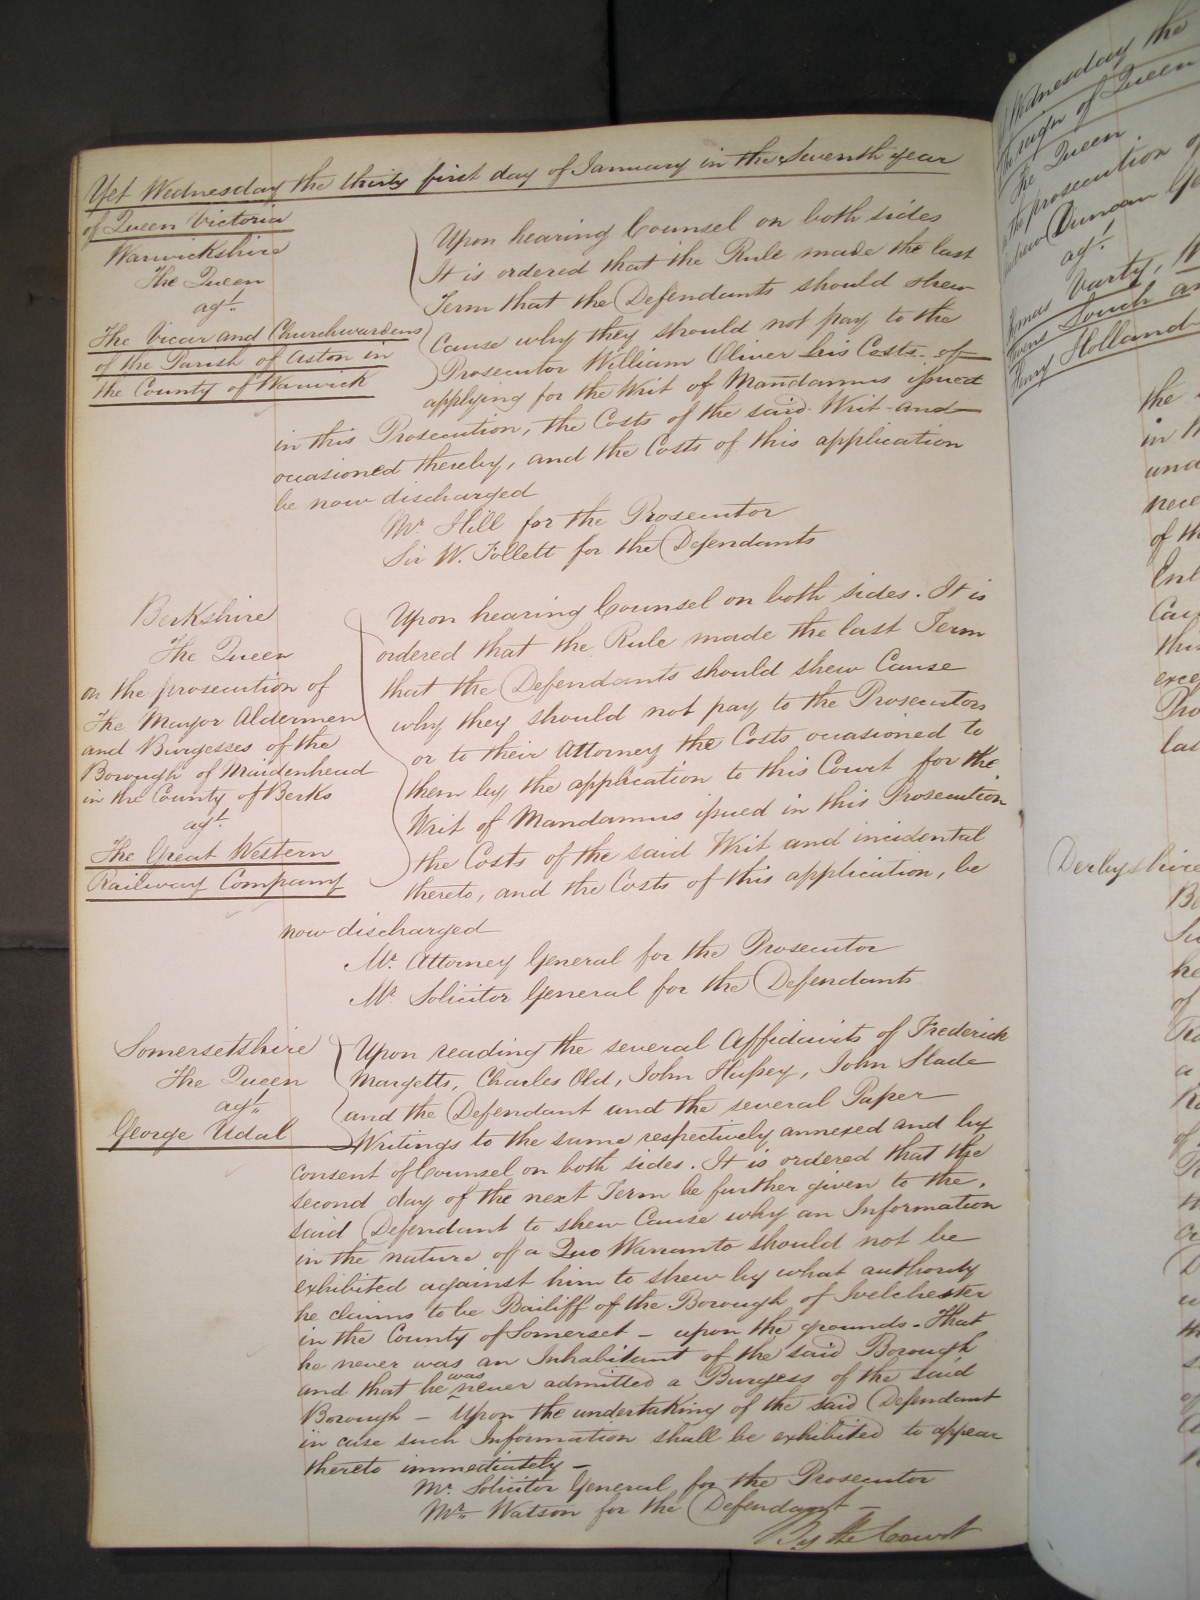 Yet Wednesday the thirty first day of January in the Seventh year
of Queen Victoria
Warwickshire
The Queen
agt.
The Vicar and Churchwardens
of the Parish of Aston in
the County of Warwick
Upon hearing Counsel on both sides
It is ordered that the Rule made the last
Term that the Defendants should shew
Cause why they should not pay to the
Prosecutor William Oliver his Costs of
applying for the Writ of Mandamus issued
in this Prosecution, the Costs of the said Writ and
occasioned thereby, and the Costs of this application
be now discharged
Mr. Hill for the Prosecutor
Sir W. Follett for the Defendants
Berkshire
The Queen
on the prosecution of
The Mayor Aldermen
and Burgesses of the
Borough of Maidenhead
in the County of Berks
agt.
The Great Western
Railway Company
Upon hearing Counsel on both sides. It is
ordered that the Rule made the last Term
that the Defendants should shew Cause
why they should not pay to the Prosecutors
or to their Attorney the Costs occasioned to
them by the application to this Court for the
Writ of Mandamus issued in this Prosecution
the Costs of the said Writ and incidental
thereto, and the Costs of this application, be
now discharged
Mr. Attorney General for the Prosecutor
Mr. Solicitor General for the Defendants
Somersetshire
The Queen
agt.
George Udal
Upon reading the several Affidavits of Frederick
Margetts, Charles Old, John Hussey, John Slade
and the Defendant and the several Paper
Writings to the same respectively annexed and by
consent of Counsel on both sides. It is ordered that the
second day of the next Term be further given to the
said Defendant to shew Cause why an Information
in the nature of a Quo Warranto should not be
exhibited against him to shew by what authority
he claims to be Bailiff of the Borough of Ivelchester
in the County of Somerset – upon the grounds – That
he never was an Inhabitant of the said Borough
and that he was never admitted a Burgess of the said
Borough – Upon the undertaking of the said Defendant
in case such Information shall be exhibited to appear
thereto immediately –
Mr. Solicitor General for the Prosecutor
Mr. Watson for the Defendant –
By the Court
Wednesday the
the reign of Queen
The Queen.
the prosecution of
Duncan
agt.
Varty,
and
Henry Holland
the
in th
una
nece
of th
Ent
Cau
this
exce
Pro
las
Derbyshire
he
of
a